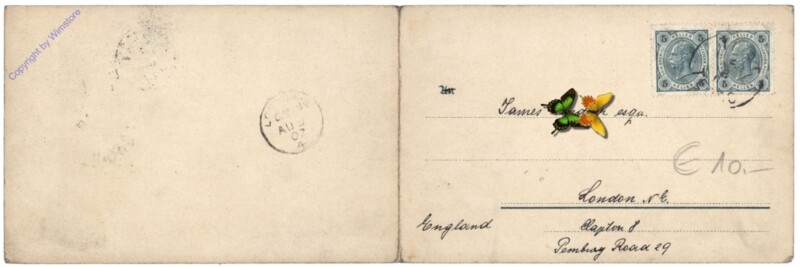 Copyright by Wimstore
5 HELLER 5
5 HELLER 5
AU
James esqu.
€ 10.-
London N.E.
England
Clapton 8
Pembury Road 29